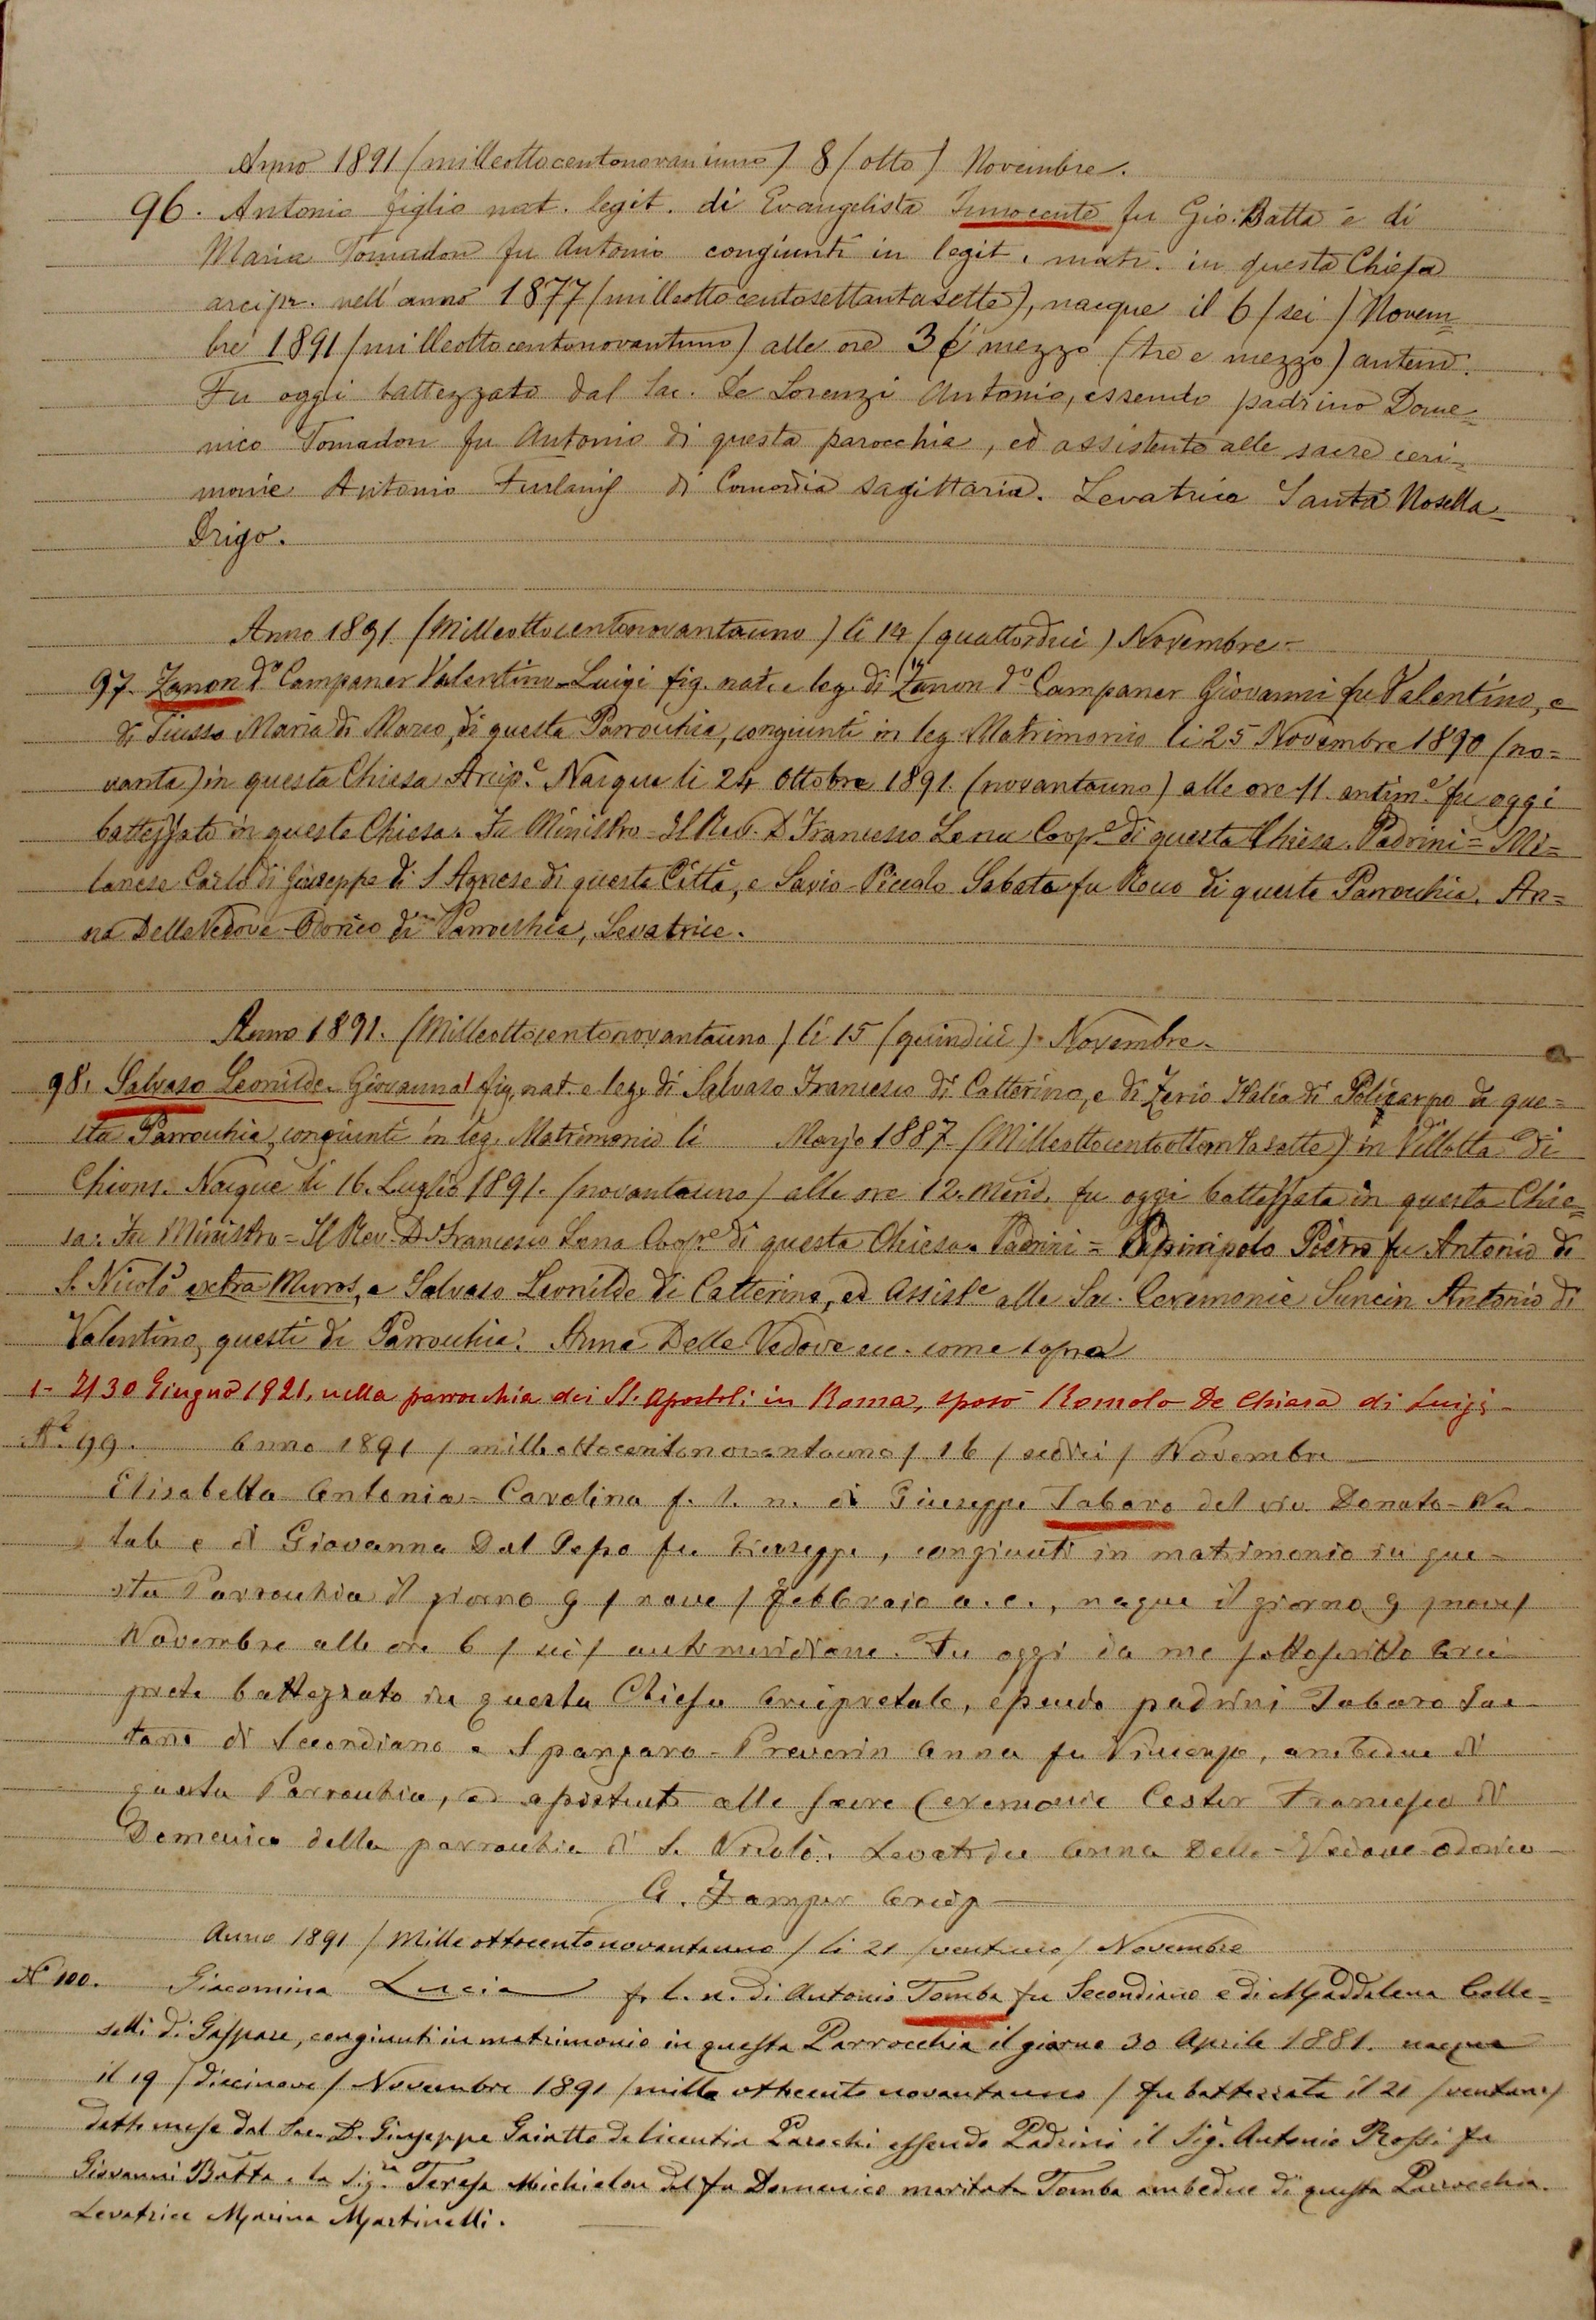 Anno 1891 (milleottocentonovanuno) 8 (otto) Novembre.
96. Antonio figlio nat. legit. di Evangelista Innocente fu Gio. Batta e di
Maria Tomadon fu Antonio congiunti in legit. matr. in questa Chiesa
arcipr. nell'anno 1877 (milleottocentosettantasette), nacque il 6 (sei) Novem=
bre 1891 (milleottocentonovantuno) alle ore 3 e mezzo (tre e mezzo) antem.
Fu oggi battezzato dal Sac. De Lorenzi Antonio, essendo padrino Dome=
nico Tomadon fu Antonio di questa parocchia, ed assistente alle sacre ceri=
monie Antonio Furlanis di Concordia Sagittaria. Levatrice Santa Nosella=
Drigo.
Anno 1891. (Milleottocentonovantauno) li 14 (quattordici) Novembre=
97. Zanon do Campaner Valentino-Luigi fig. nat. e leg. di Zanon do Campaner Giovanni fu Valentino, e
di Tiusso Maria di Marco, di questa Parrochia, congiunti in leg Matrimonio li 25 Novembre 1890 (no=
vanta) in questa Chiesa Arcip.e Nacque li 24 Ottobre 1891. (novantauno) alle ore 11. antim.e fu oggi
battezzato in questa Chiesa. Fu Ministro = Il Rev. D Francesco Lena Coop.e di questa Chiesa. Padrini = Mi=
lanese Carlo di Giuseppe di S Agnese di questa Città, e Savio-Piccolo Sabata fu Rocco di questa Parrochia. An=
na Della Vedova-Odorico di Parrochia, Levatrice.
Anno 1891. (Milleottocentonovantauno) li 15 (quindici) Novembre.
98. Salvaso Leonilde-Giovanna1 fig. nat. e leg. di Salvaso Francesco di Catterina, e di Zerio Italia di Policarpo di que=
sta Parrochia, congiunti in leg. Matrimonio li Marzo 1887 (Milleottocentoottantasette) in Villotta di
Chions. Nacque li 16. Luglio 1891. (novantauno) alle ore 12. Merid. fu oggi battezzata in questa Chie=
sa. Fu Ministro = Il Rev. D. Francesco Lena Coop.e di questa Chiesa. Padrini = Pietro fu Antonio di
S. Nicolò extra Muros, e Salvaso Leonilde di Catterina, ed Assiste alle Sac. Ceremonie Suncin Antonio di
Valentino, questi di Parrochia. Anna Della Vedova ecc. come sopra
1- Il 30 Giugno 1921, nella parrochia dei SS. Apostoli in Roma, sposò Romolo De Chiara di Luigi-
No 99. Anno 1891 / milleottocentonovantauno / 16 / sedici / Novembre
Elisabetta Antonia-Carolina f. l. n. di Giuseppe Tabaro del viv. Donato-Na-
tale e di Giovanna Dal Pepo fu Giuseppe, congiunti in matrimonio in que-
sta Parrochia il giorno 9 / nove / Febbraio a. c., naque il giorno 9 / nove /
Novembre alle ore 6 / sei / antimeridiane. Fu oggi da me sottoscritto Arci-
prete battezzata in questa Chiesa Arcipretale, essendo padrini Tabaro Gae-
tano di Secondiano e Spangaro-Preverin Anna fu Vincenzo, ambedue di
questa Parrochia, ed assistente alle sacre Ceremonie Cester Francesco di
Domenico della parrochia di S. Nicolò. Levatrice Anna Della-Vedova Odorico
G. Zamper Arcip
Anno 1891 / Milleottocentonovantauno / li 21 / ventuno / Novembre
No 100. Giacomina Lucia f. l. n. di Antonio Tomba fu Secondiano e di Maddalena Colle=
selli di Gaspare, congiunti in matrimonio in questa Parrocchia il giorno 30 Aprile 1881. nacque
il 19 / diecinove / Novembre 1891 / mille ottocento novantauno / fu battezzata il 21 / ventuno /
detto mese dal Sac. D. Giuseppe Gaiatto de licentia Parochi essendo Padrini il Sig.r Antonio Rossi fu
Giovanni Batta e la Sig.ra Teresa Michielon del fu Domenico maritata Tomba ambedue di questa Parrocchia.
Levatrice Marina Martinelli.